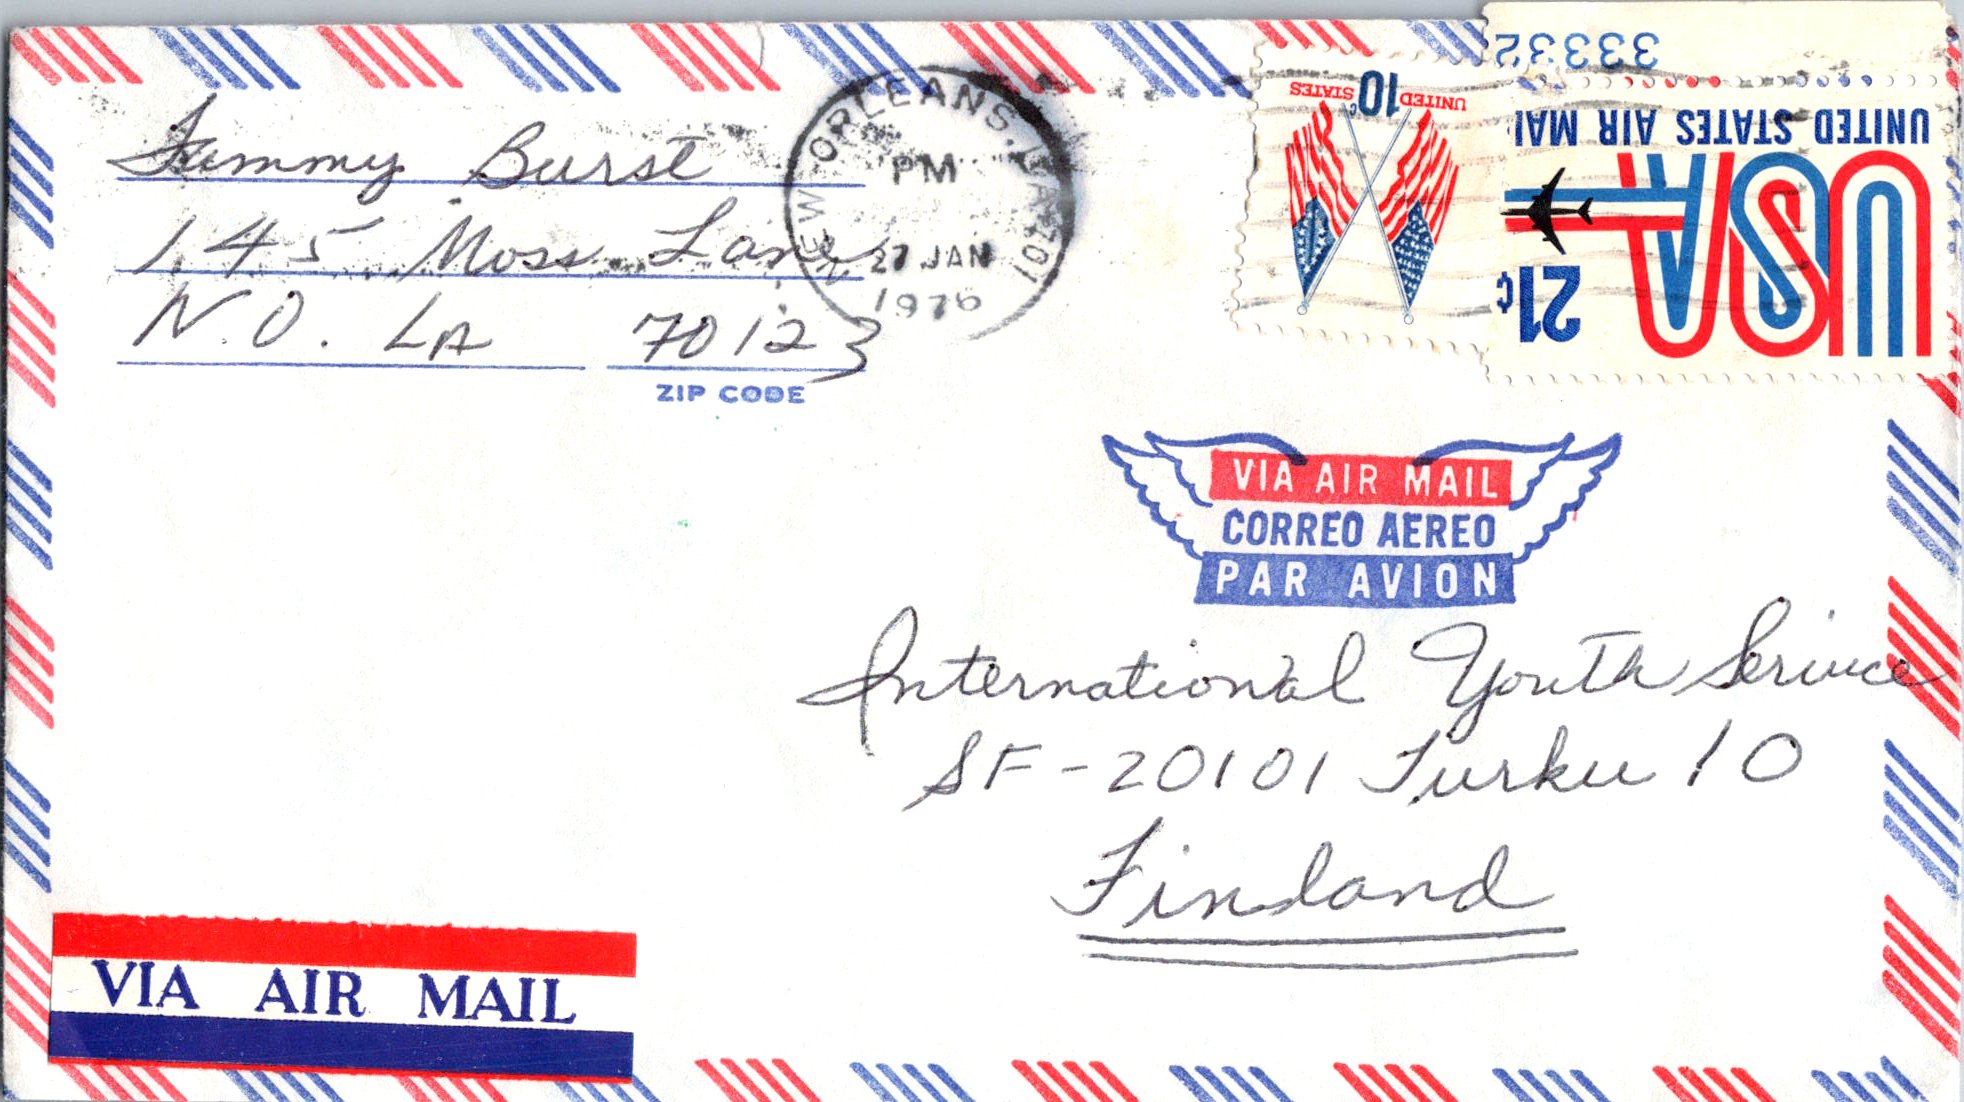 Tammy Burst
145 Moss Lane
N.O. LA 70123
ZIP CODE
NEW ORLEANS, LA 701
PM
27 JAN
1976
10¢
UNITED STATES
33332
UNITED STATES AIR MAI
USA
21¢
VIA AIR MAIL
CORREO AEREO
PAR AVION
International Youth Serivce
SF-20101 Turku 10
Finland
VIA AIR MAIL